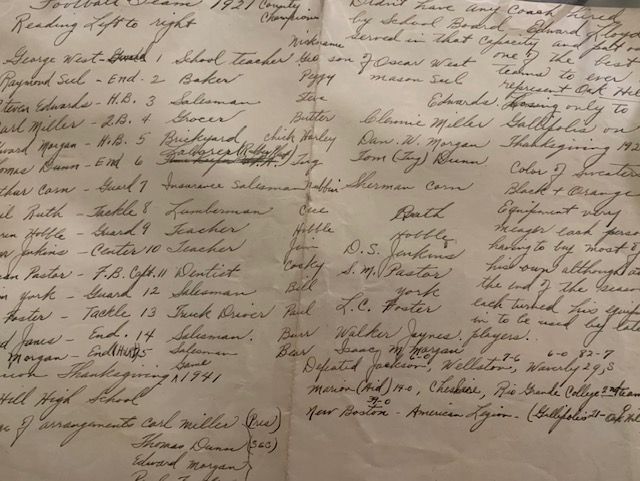 Football Team 1921 County
Reading Left to right Champions
Nickname
George West - Guard 1 School teacher Geo son of Oscar West
Raymond Seel - End - 2 Baker Peggy mason Seel
Steven Edwards - H.B. 3 Salesman Steve Edwards
Carl Miller - 2.B. 4 Grocer Butter Clennie Miller
Edward Morgan - H.B. 5 Brickyard Chick Harley Dan. W. Morgan
Thomas Dunn - End 6 Tug Tom (Tug) Dunn
thur Corn - Guard 7 Insurance Salesman Nubbin Sherman Corn
l Ruth - Tackle 8 Lumberman Cece Ruth
ren Hobble - Guard 9 Teacher Hobble Hobble
er Jenkins - Center 10 Teacher Jim D.S. Jenkins
ean Pastor - F.B. Cpt. 11 Dentist Corky S.M. Pastor
n york - Guard 12 Salesman Bill york
Foster - Tackle 13 Truck Driver Paul L.C. Foster
d Janes - End. 14 Salesman. Burr Walker Jaynes.
Morgan - End 15 Salesman Bear Isaac M. Morgan
Thanksgiving 1941 Game
Hill High School
of arrangements Carl Miller (Pres)
Thomas Dunn (Sec)
Edward Morgan
Didn't have any Coach hired
by School Board - Edward Lloyd
served in that capacity and put
one of the best
teams to ever
represent Oak Hill
Losing only to
Gallipolis on
Thanksgiving 192
Color of Sweaters
Black & Orange
Equipment very
meager each person
having to by most of
his own although at
the end of the season
each turned his equip
in to be used by late
players..
6-0 7-6 6-0 82-7
Defeated Jackson, Wellston, Waverly 29, S
Marion (Hid) 14-0, Cheshire, Rio Grande College 2nd team
39-0
New Boston - American Legion - (Gallipolis 21 - Oak Hil